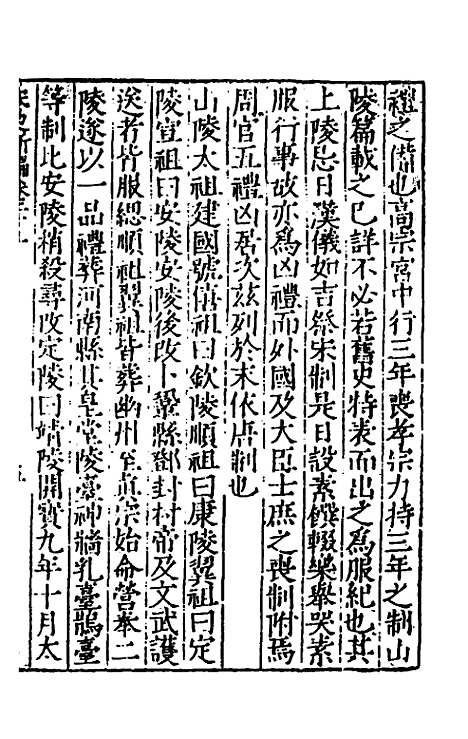 禮之備也高宗宮中行三年喪孝宗力持三年之制山
陵篇載之已詳不必若舊史特表而出之為服紀也其
上陵忌日漢儀如吉祭宋制是日設素饌輟樂舉哭素
服行事故亦為凶禮而外國及大臣士庶之喪制附焉
周官五禮凶居次茲列於末依唐制也
山陵太祖建國號僖祖曰欽陵順祖曰康陵翼祖曰定
陵宣祖曰安陵安陵後改卜鞏縣鄧封村帝及文武護
送者皆服緦順祖翼祖皆葬幽州至真宗始命營奉二
陵遂以一品禮葬河南縣其皇堂陵臺神牆乳臺鵲臺
等制比安陵稍殺尋改定陵曰靖陵開寶九年十月太